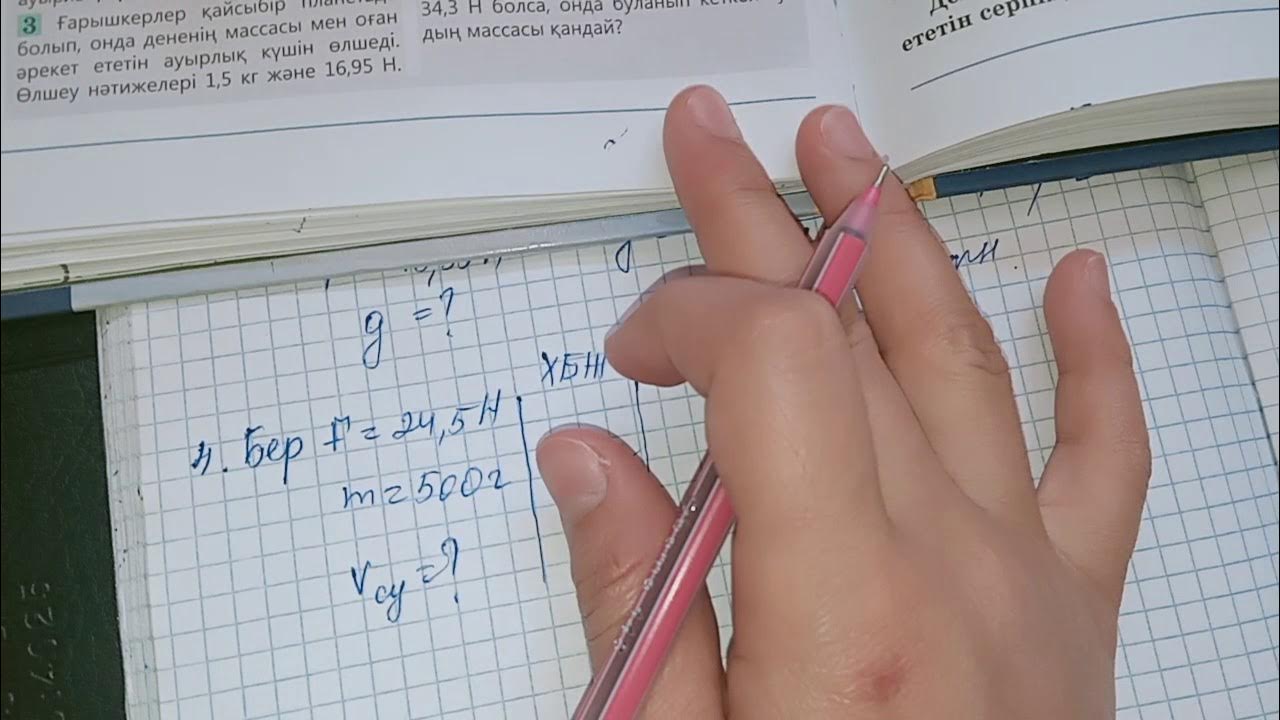 3 Ғарышкерлер қайсыбір
болып, онда дененің массасы мен оған
әрекет ететін ауырлық күшін өлшеді.
Өлшеу нәтижелері 1,5 кг және 16,95 Н.
34,3 Н болса, онда буланып
дың массасы қандай?
ететін
g = ?
ХБЖ
4. Бер F = 24,5 Н
m = 500 г
Vсу = ?